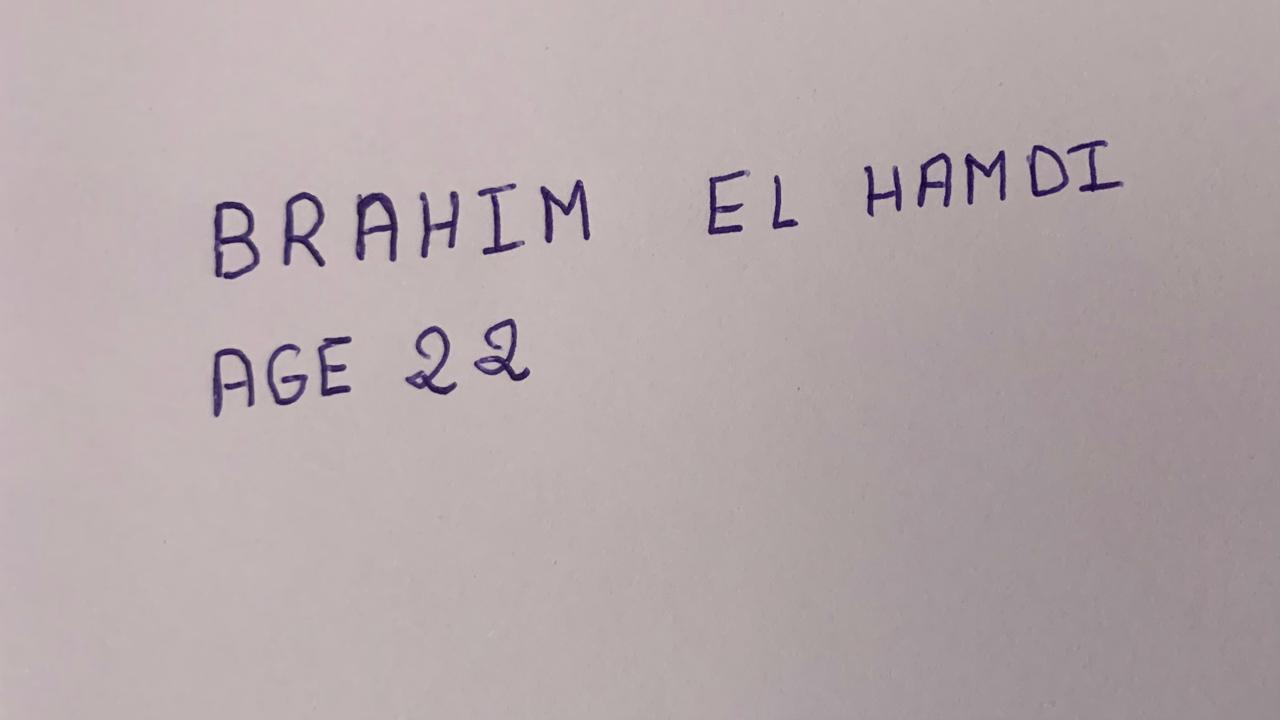 BRAHIM EL HAMDI
AGE 22